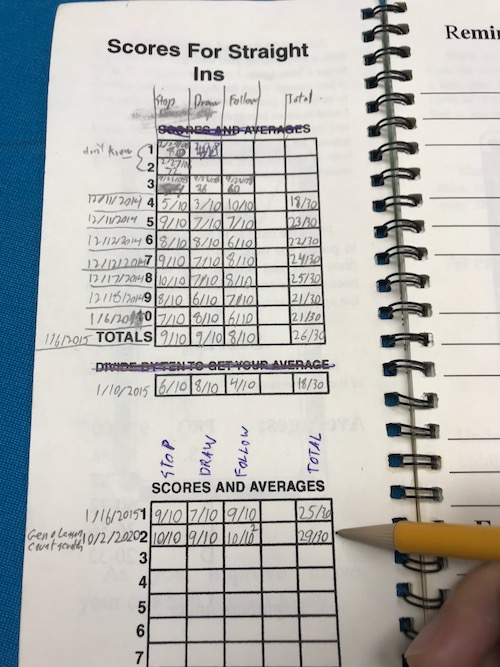 Scores For Straight
Ins
Remin
Stop Draw Follow Total
SCORES AND AVERAGES
don't know 1
2
3 36 60
12/11/2014 4 5/10 3/10 10/10 18/30
12/11/2014 5 9/10 7/10 7/10 23/30
12/12/2014 6 8/10 8/10 6/10 22/30
12/12/2014 7 9/10 7/10 8/10 24/30
12/17/2014 8 10/10 7/10 8/10 25/30
12/18/2014 9 8/10 6/10 7/10 21/30
1/6/201 0 7/10 8/10 6/10 21/30
1/6/2015 TOTALS 9/10 9/10 8/10 26/30
DIVIDE BY TEN TO GET YOUR AVERAGE
1/10/2015 6/10 8/10 4/10 18/30
STOP DRAW FOLLOW TOTAL
SCORES AND AVERAGES
1/16/2015 1 9/10 7/10 9/10 25/30
10/2/2020 2 10/10 9/10 10/10 2 29/30
3
4
5
6
7